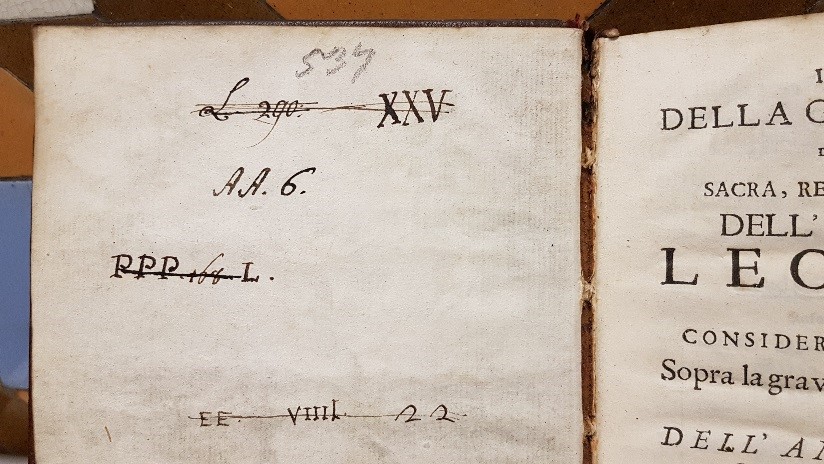 L. 290. XXV
AA. 6.
PPP. L.
EE VIIII 22
DELLA
SACRA, RE
DELL'
LEO
CONSIDER
Sopra la grav
DELL'